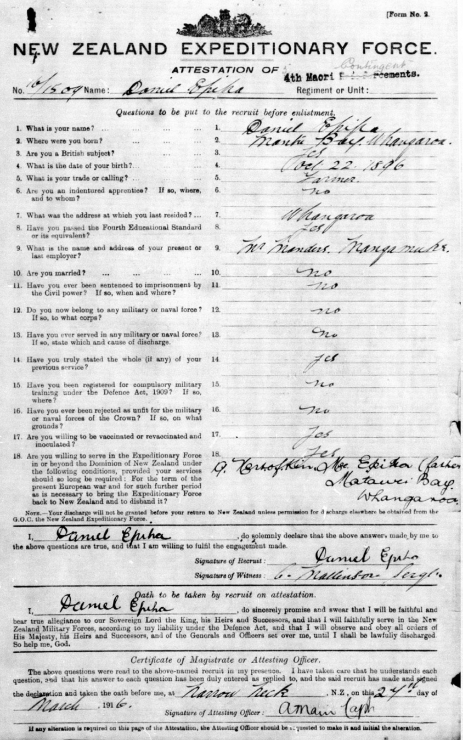 [Form No. 2.
NEW ZEALAND EXPEDITIONARY FORCE.
Contingent
ATTESTATION OF 4th Maori
No. 16/1509 Name: Daniel Epiha Regiment or Unit:
Questions to be put to the recruit before enlistment.
1. What is your name? ... 1. Daniel Epiha
2. Where were you born? 2. Bay, Whangaroa.
3. Are you a British subject? 3. Yes
4. What is the date of your birth? 4. 22 1896
5. What is your trade or calling? 5. Farmer.
6. Are you an indentured apprentice? If so, where, 6. no
and to whom?
7. What was the address at which you last resided? 7. Whangaroa
8. Have you passed the Fourth Educational Standard 8. Yes
or its equivalent?
9. What is the name and address of your present or 9. Mr Manders. Mangamuka.
last employer?
10. Are you married? 10. no
11. Have you ever been sentenced to imprisonment by 11. no
the Civil power? If so, when and where?
12. Do you now belong to any military or naval force? 12. no
If so, to what corps?
13. Have you ever served in any military or naval force? 13. no
If so, state which and cause of discharge.
14. Have you truly stated the whole (if any) of your 14. yes
previous service?
15. Have you been registered for compulsory military 15. no
training under the Defence Act, 1909? If so,
where?
16. Have you ever been rejected as unfit for the military 16. no
or naval forces of the Crown? If so, on what
grounds?
17. Are you willing to be vaccinated or revaccinated and 17. Yes
inoculated?
18. Are you willing to serve in the Expeditionary Force 18. Yes
in or beyond the Dominion of New Zealand under
the following conditions, provided your services
should so long be required: For the term of the
present European war and for such further period
as is necessary to bring the Expeditionary Force
back to New Zealand and to disband it?
Epiha (father
Bay.
Whangaroa.
NOTE.—Your discharge will not be granted before your return to New Zealand unless permission for discharge elsewhere be obtained from the
G.O.C. the New Zealand Expeditionary Force.
I, Daniel Epiha, do solemnly declare that the above answers made by me to
the above questions are true, and that I am willing to fulfil the engagement made.
Signature of Recruit: Daniel Epiha
Signature of Witness:
Oath to be taken by recruit on attestation.
I, Daniel Epiha, do sincerely promise and swear that I will be faithful and
bear true allegiance to our Sovereign Lord the King, his Heirs and Successors, and that I will faithfully serve in the
New Zealand Military Forces, according to my liability under the Defence Act, and that I will observe and obey all orders of
His Majesty, his Heirs and Successors, and of the Generals and Officers set over me, until I shall be lawfully discharged.
So help me, God.
Certificate of Magistrate or Attesting Officer.
The above questions were read to the above-named recruit in my presence. I have taken care that he understands each
question, and that his answer to each question has been duly entered as replied to, and the said recruit has made and signed
the declaration and taken the oath before me, at Narrow Neck, N.Z., on this 24th day of
March, 1916.
Signature of Attesting Officer:
If any alteration is required on this page of the Attestation, the Attesting Officer should be requested to make it and initial the alteration.